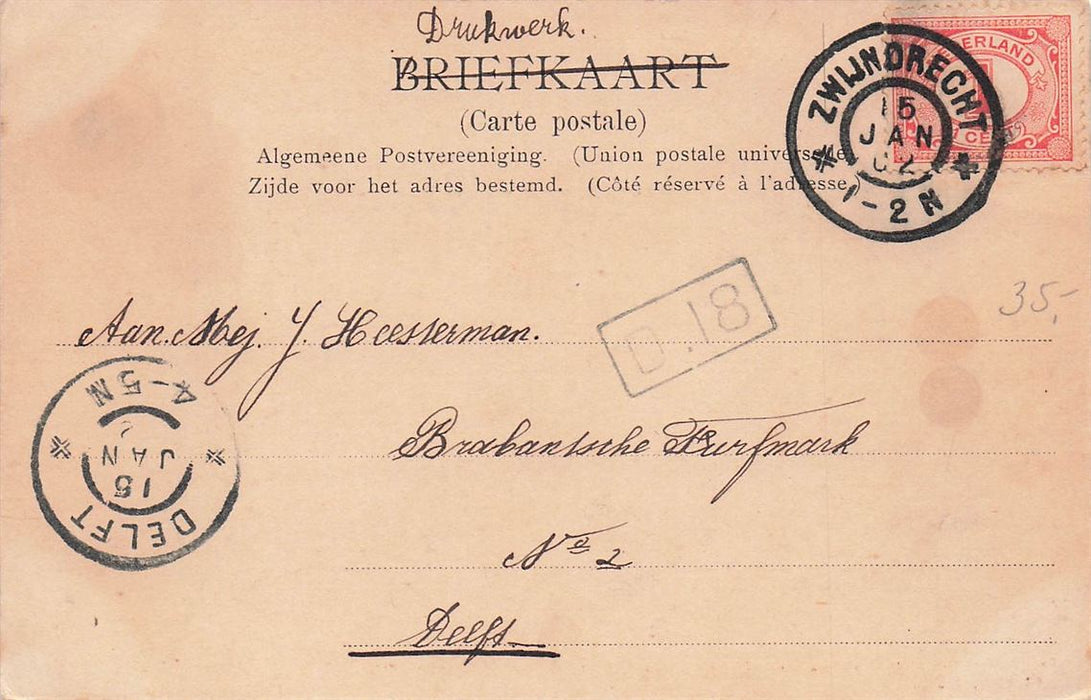 Drukwerk.
BRIEFKAART
(Carte postale)
Algemeene Postvereeniging. (Union postale universelle)
Zijde voor het adres bestemd. (Côté réservé à l'adresse)
NEDERLAND
1 CENT
ZWIJNDRECHT
15
JAN
02
1-2N
35,-
D.18
Aan Mej. J. Hoesterman.
Brabantsche Turfmark
No 2
Delft
DELFT
15
JAN
4-5N